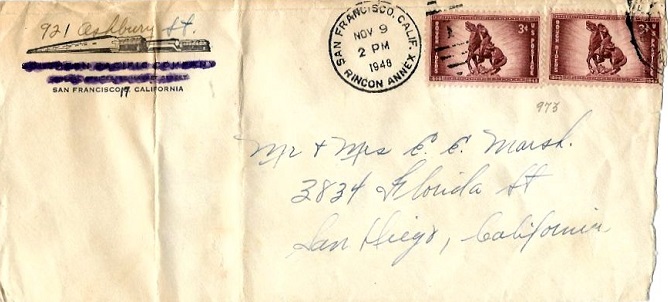 921 Ashbury St.
SAN FRANCISCO 17, CALIFORNIA
SAN FRANCISCO, CALIF.
NOV 9
2 PM
1948
RINCON ANNEX
3¢
3¢
973
Mr & Mrs E. E. Marsh.
3834 Florida St
San Diego, California